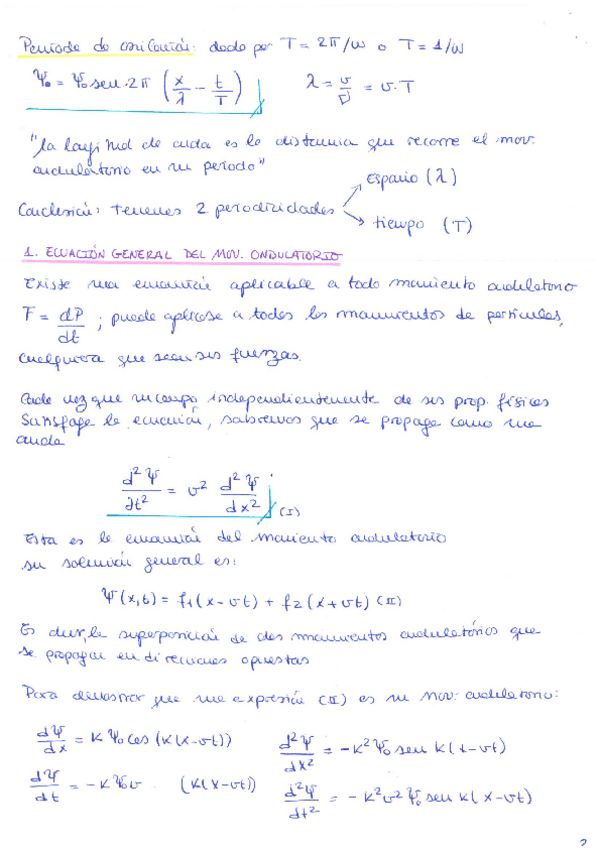 Periodo de oscilación: dado por T = 2π/w o T = 1/w
Ψ₀ = Ψ₀ sen·2π (x/λ − t/T)    λ = v/ν = v·T
"la longitud de onda es la distancia que recorre el mov.
ondulatorio en un periodo"
espacio (λ)
Conclusión: tenemos 2 periodicidades
tiempo (T)
1. ECUACIÓN GENERAL DEL MOV. ONDULATORIO
Existe una ecuación aplicable a todo movimiento ondulatorio
F = dP/dt ; puede aplicarse a todos los movimientos de partículas,
cualquiera que sean sus fuerzas.
Cada vez que un campo, independientemente de sus prop. físicas
satisfaga la ecuación, sabremos que se propaga como una
onda
d²Ψ/∂t² = v² d²Ψ/dx² (I)
Esta es la ecuación del movimiento ondulatorio
su solución general es:
Ψ(x,t) = f1(x−vt) + f2(x+vt) (II)
Es decir, la superposición de dos movimientos ondulatorios que
se propagan en direcciones opuestas
Para demostrar que una expresión (II) es un mov. ondulatorio:
dΨ/dx = KΨ₀cos (K(x−vt))    d²Ψ/dx² = −K²Ψ₀ sen K(t−vt)
dΨ/dt = −KΨ₀v (K(x−vt))    d²Ψ/dt² = −K²v²Ψ₀ sen K(x−vt)
2